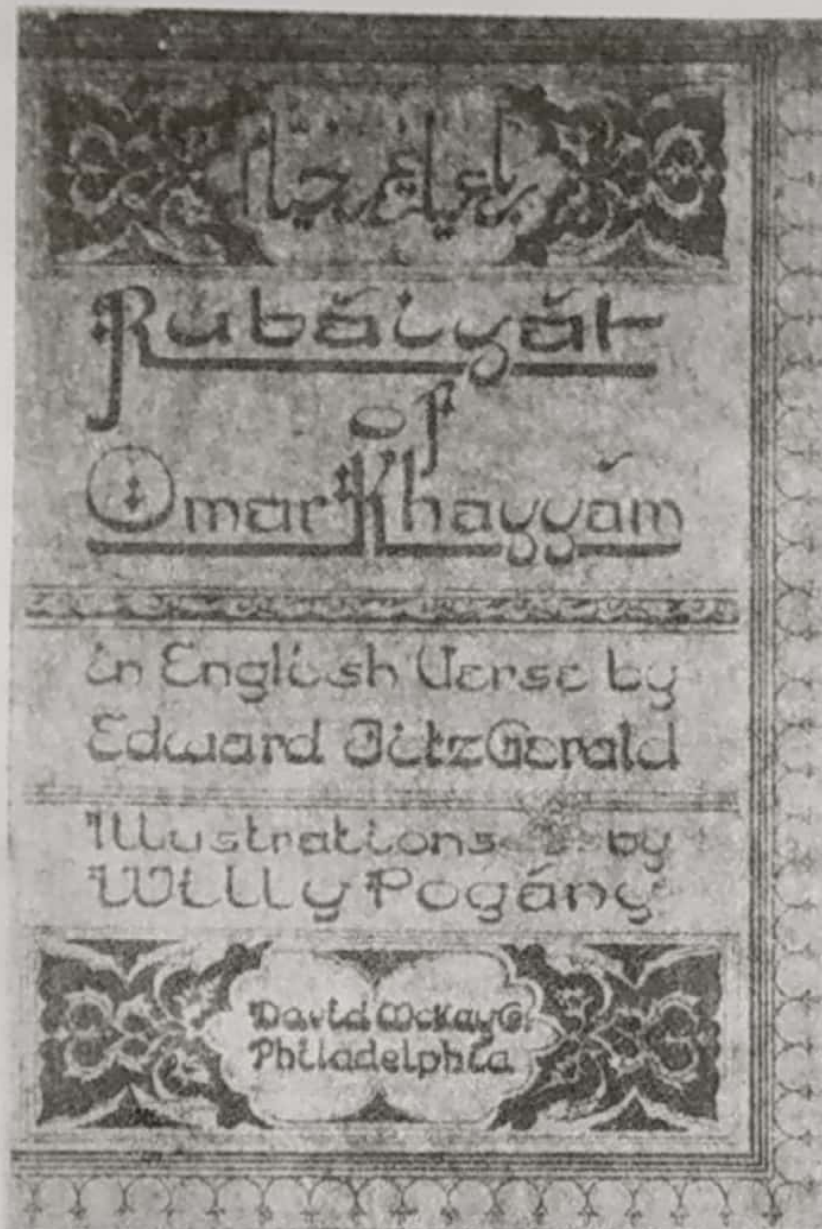 رباعیات عمر خیام
Rubáiyát
of
Omar Khayyám
in English Verse by
Edward FitzGerald
Illustrations by
Willy Pogány
David McKay Co.
Philadelphia